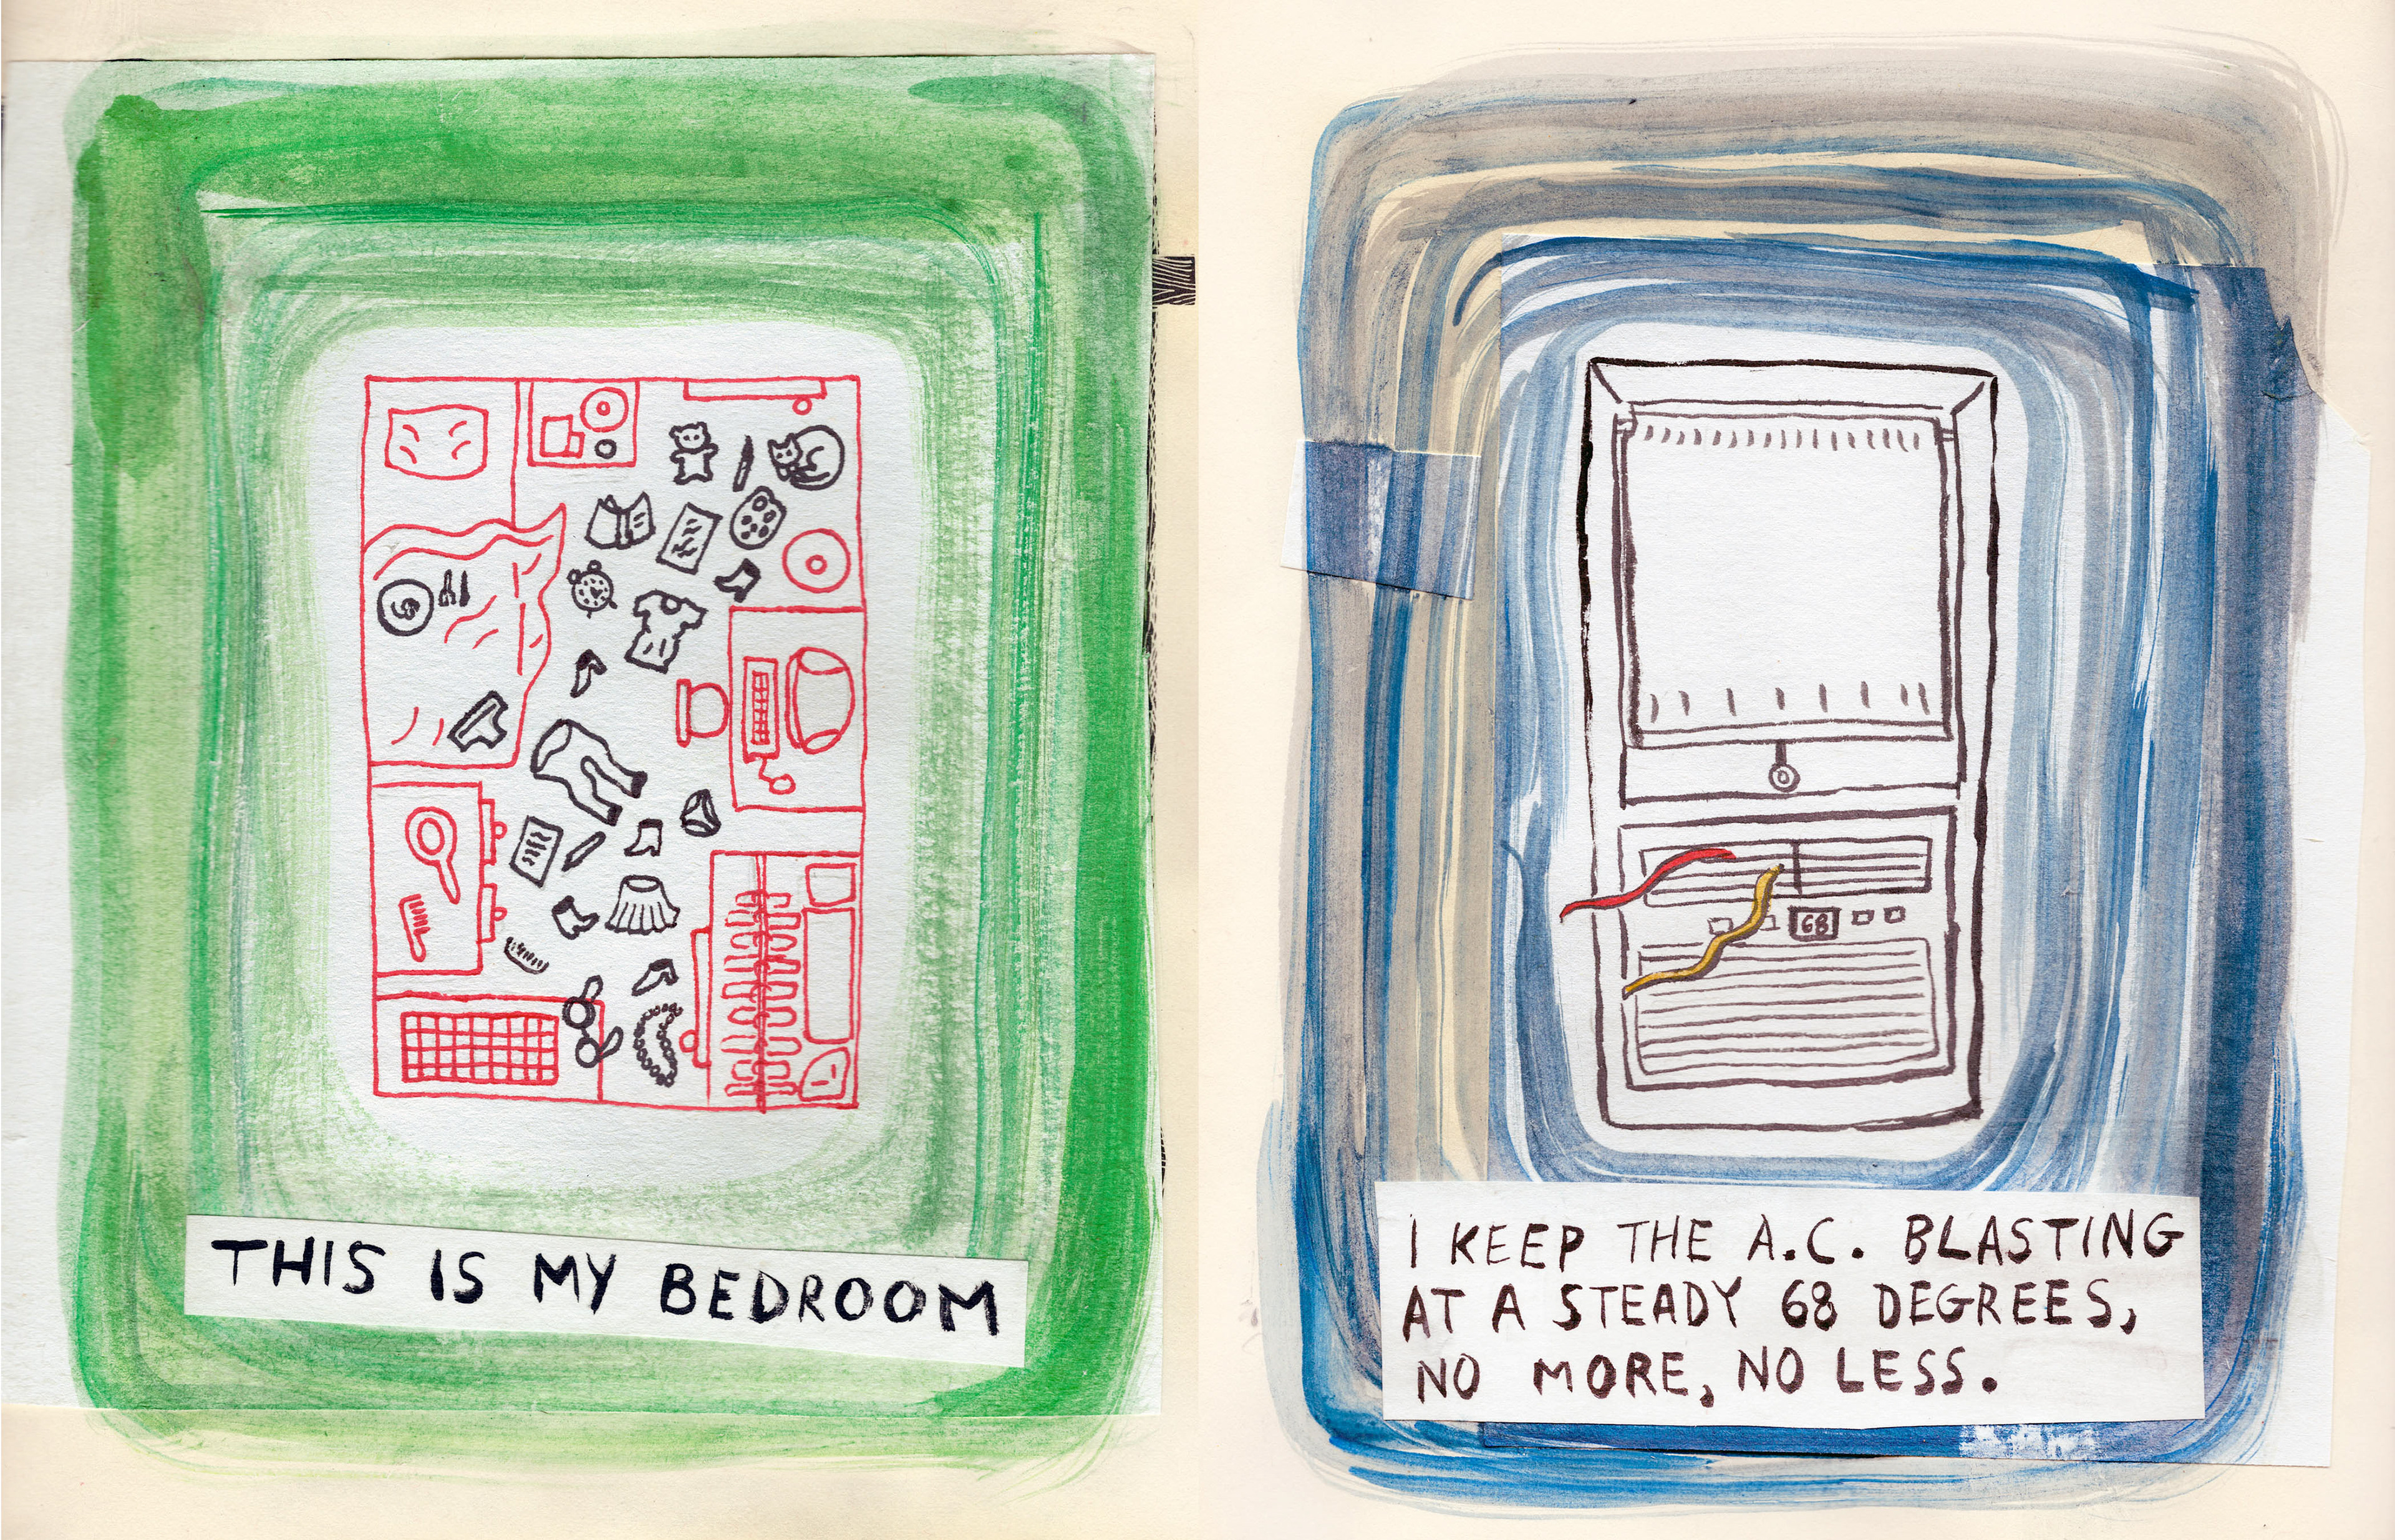 THIS IS MY BEDROOM
68
I KEEP THE A.C. BLASTING
AT A STEADY 68 DEGREES,
NO MORE, NO LESS.